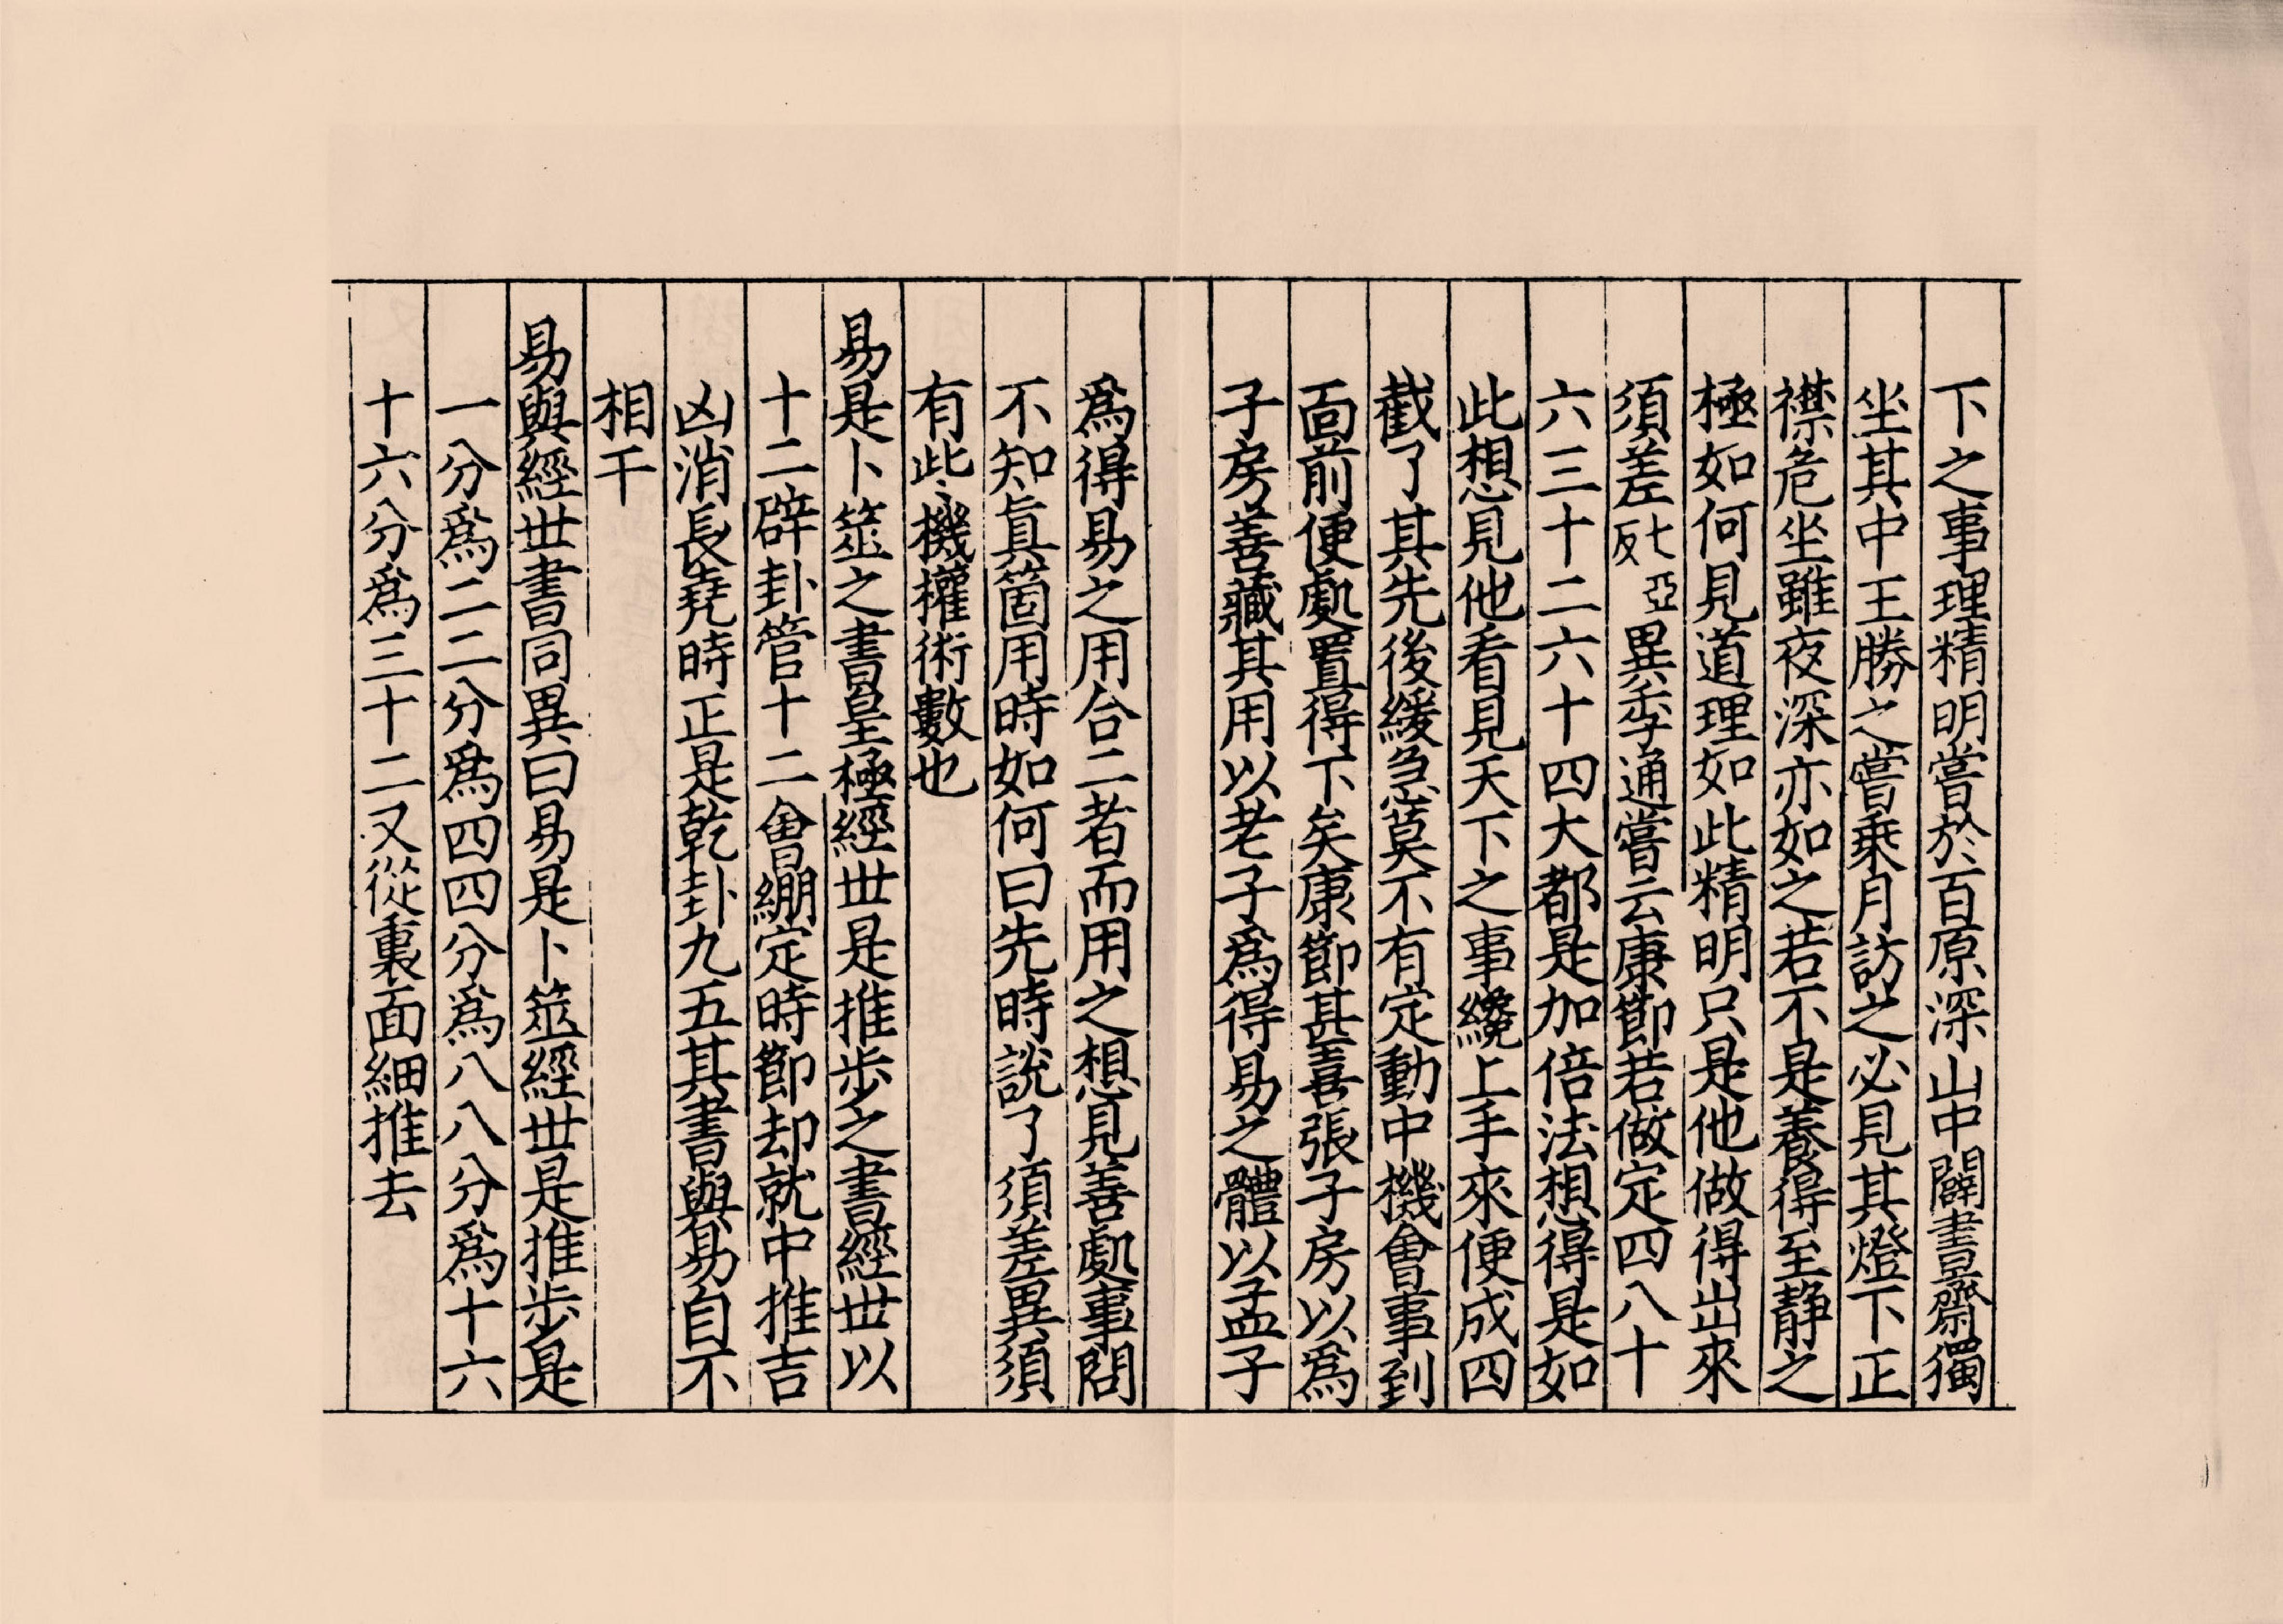 下之事理精明嘗於百原深山中闢書齋獨
坐其中王勝之嘗乘月訪之必見其燈下正
襟危坐雖夜深亦如之若不是養得至靜之
極如何見道理如此精明只是他做得出來
須差七亞反異季通嘗云康節若做定四八十
六三十二六十四大都是加倍法想得是如
此想見他看見天下之事纔上手來便成四
截了其先後緩急莫不有定動中機會事到
面前便處置得下矣康節甚喜張子房以爲
子房善藏其用以老子爲得易之體以孟子
爲得易之用合二者而用之想見善處事問
不知眞箇用時如何曰先時說了須差異須
有此機權術數也
易是卜筮之書皇極經世是推步之書經世以
十二辟卦管十二會繃定時節却就中推吉
凶消長堯時正是乾卦九五其書與易自不
相干
易與經世書同異曰易是卜筮經世是推步是
一分爲二二分爲四四分爲八八分爲十六
十六分爲三十二又從裏面細推去